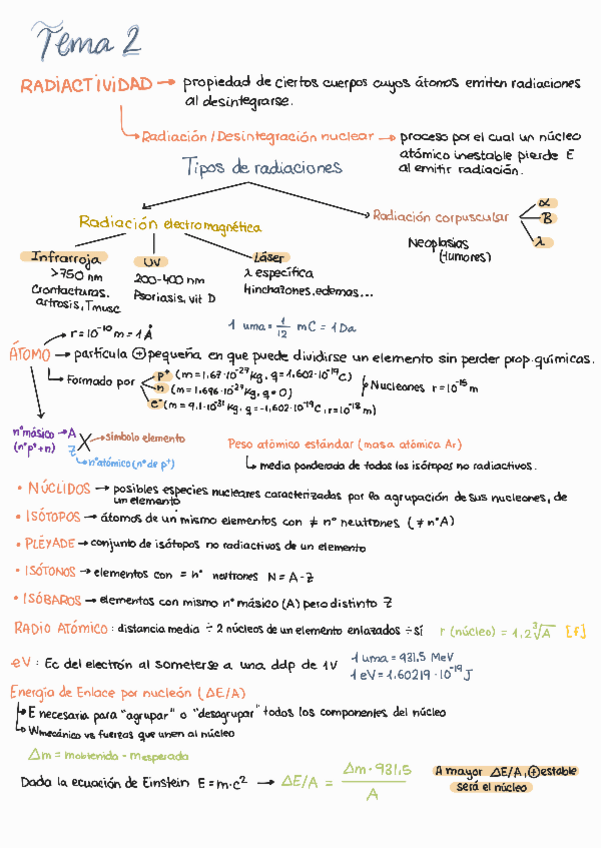 Tema 2
RADIACTIVIDAD → propiedad de ciertos cuerpos cuyos átomos emiten radiaciones
al desintegrarse.
Radiación / Desintegración nuclear → proceso por el cual un núcleo
atómico inestable pierde E
al emitir radiación.
Tipos de radiaciones
Radiación electromagnética
Radiación corpuscular
α
B
λ
Neoplasias
(tumores)
Infrarroja
>750 nm
Contracturas.
artrosis, Tmusc
UV
200-400 nm
Psoriasis, vit D
Láser
λ específica
Hinchazones, edemas...
1 uma = 1/12 mC = 1 Da
r = 10⁻¹⁰ m = 1 Å
ÁTOMO → partícula ⊕ pequeña en que puede dividirse un elemento sin perder prop. químicas.
Formado por
p⁺ (m = 1,67·10⁻²⁷ Kg, q = 1,602·10⁻¹⁹ C)
n (m = 1,696·10⁻²⁷ Kg, q = 0)
e⁻ (m = 9,1·10⁻³¹ Kg, q = -1,602·10⁻¹⁹ C, r = 10⁻¹⁸ m)
Nucleones r = 10⁻¹⁵ m
nº másico → A
(nº p⁺ + n)
X → símbolo elemento
Z
nº atómico (nº de p⁺)
Peso atómico estándar (masa atómica Ar)
media ponderada de todos los isótopos no radiactivos.
• NÚCLIDOS → posibles especies nucleares caracterizados por la agrupación de sus nucleones, de
un elemento
• ISÓTOPOS → átomos de un mismo elementos con ≠ nº neutrones (≠ nº A)
• PLÉYADE → conjunto de isótopos no radiactivos de un elemento
• ISÓTONOS → elementos con = nº neutrones N = A - Z
• ISÓBAROS → elementos con mismo nº másico (A) pero distinto Z
RADIO ATÓMICO : distancia media ÷ 2 núcleos de un elemento enlazados ÷ sí r (núcleo) = 1,2 ∛A [f]
eV : Ec del electrón al someterse a una ddp de 1V
1 uma = 931,5 MeV
1 eV = 1,60219·10⁻¹⁹ J
Energía de Enlace por nucleón (ΔE/A)
E necesaria para "agrupar" o "desagrupar" todos los componentes del núcleo
Wmecánico vs fuerzas que unen al núcleo
Δm = mobtenida - mesperada
Dada la ecuación de Einstein E = m·c² → ΔE/A = Δm·931,5 / A
A mayor ΔE/A, ⊕ estable
será el núcleo